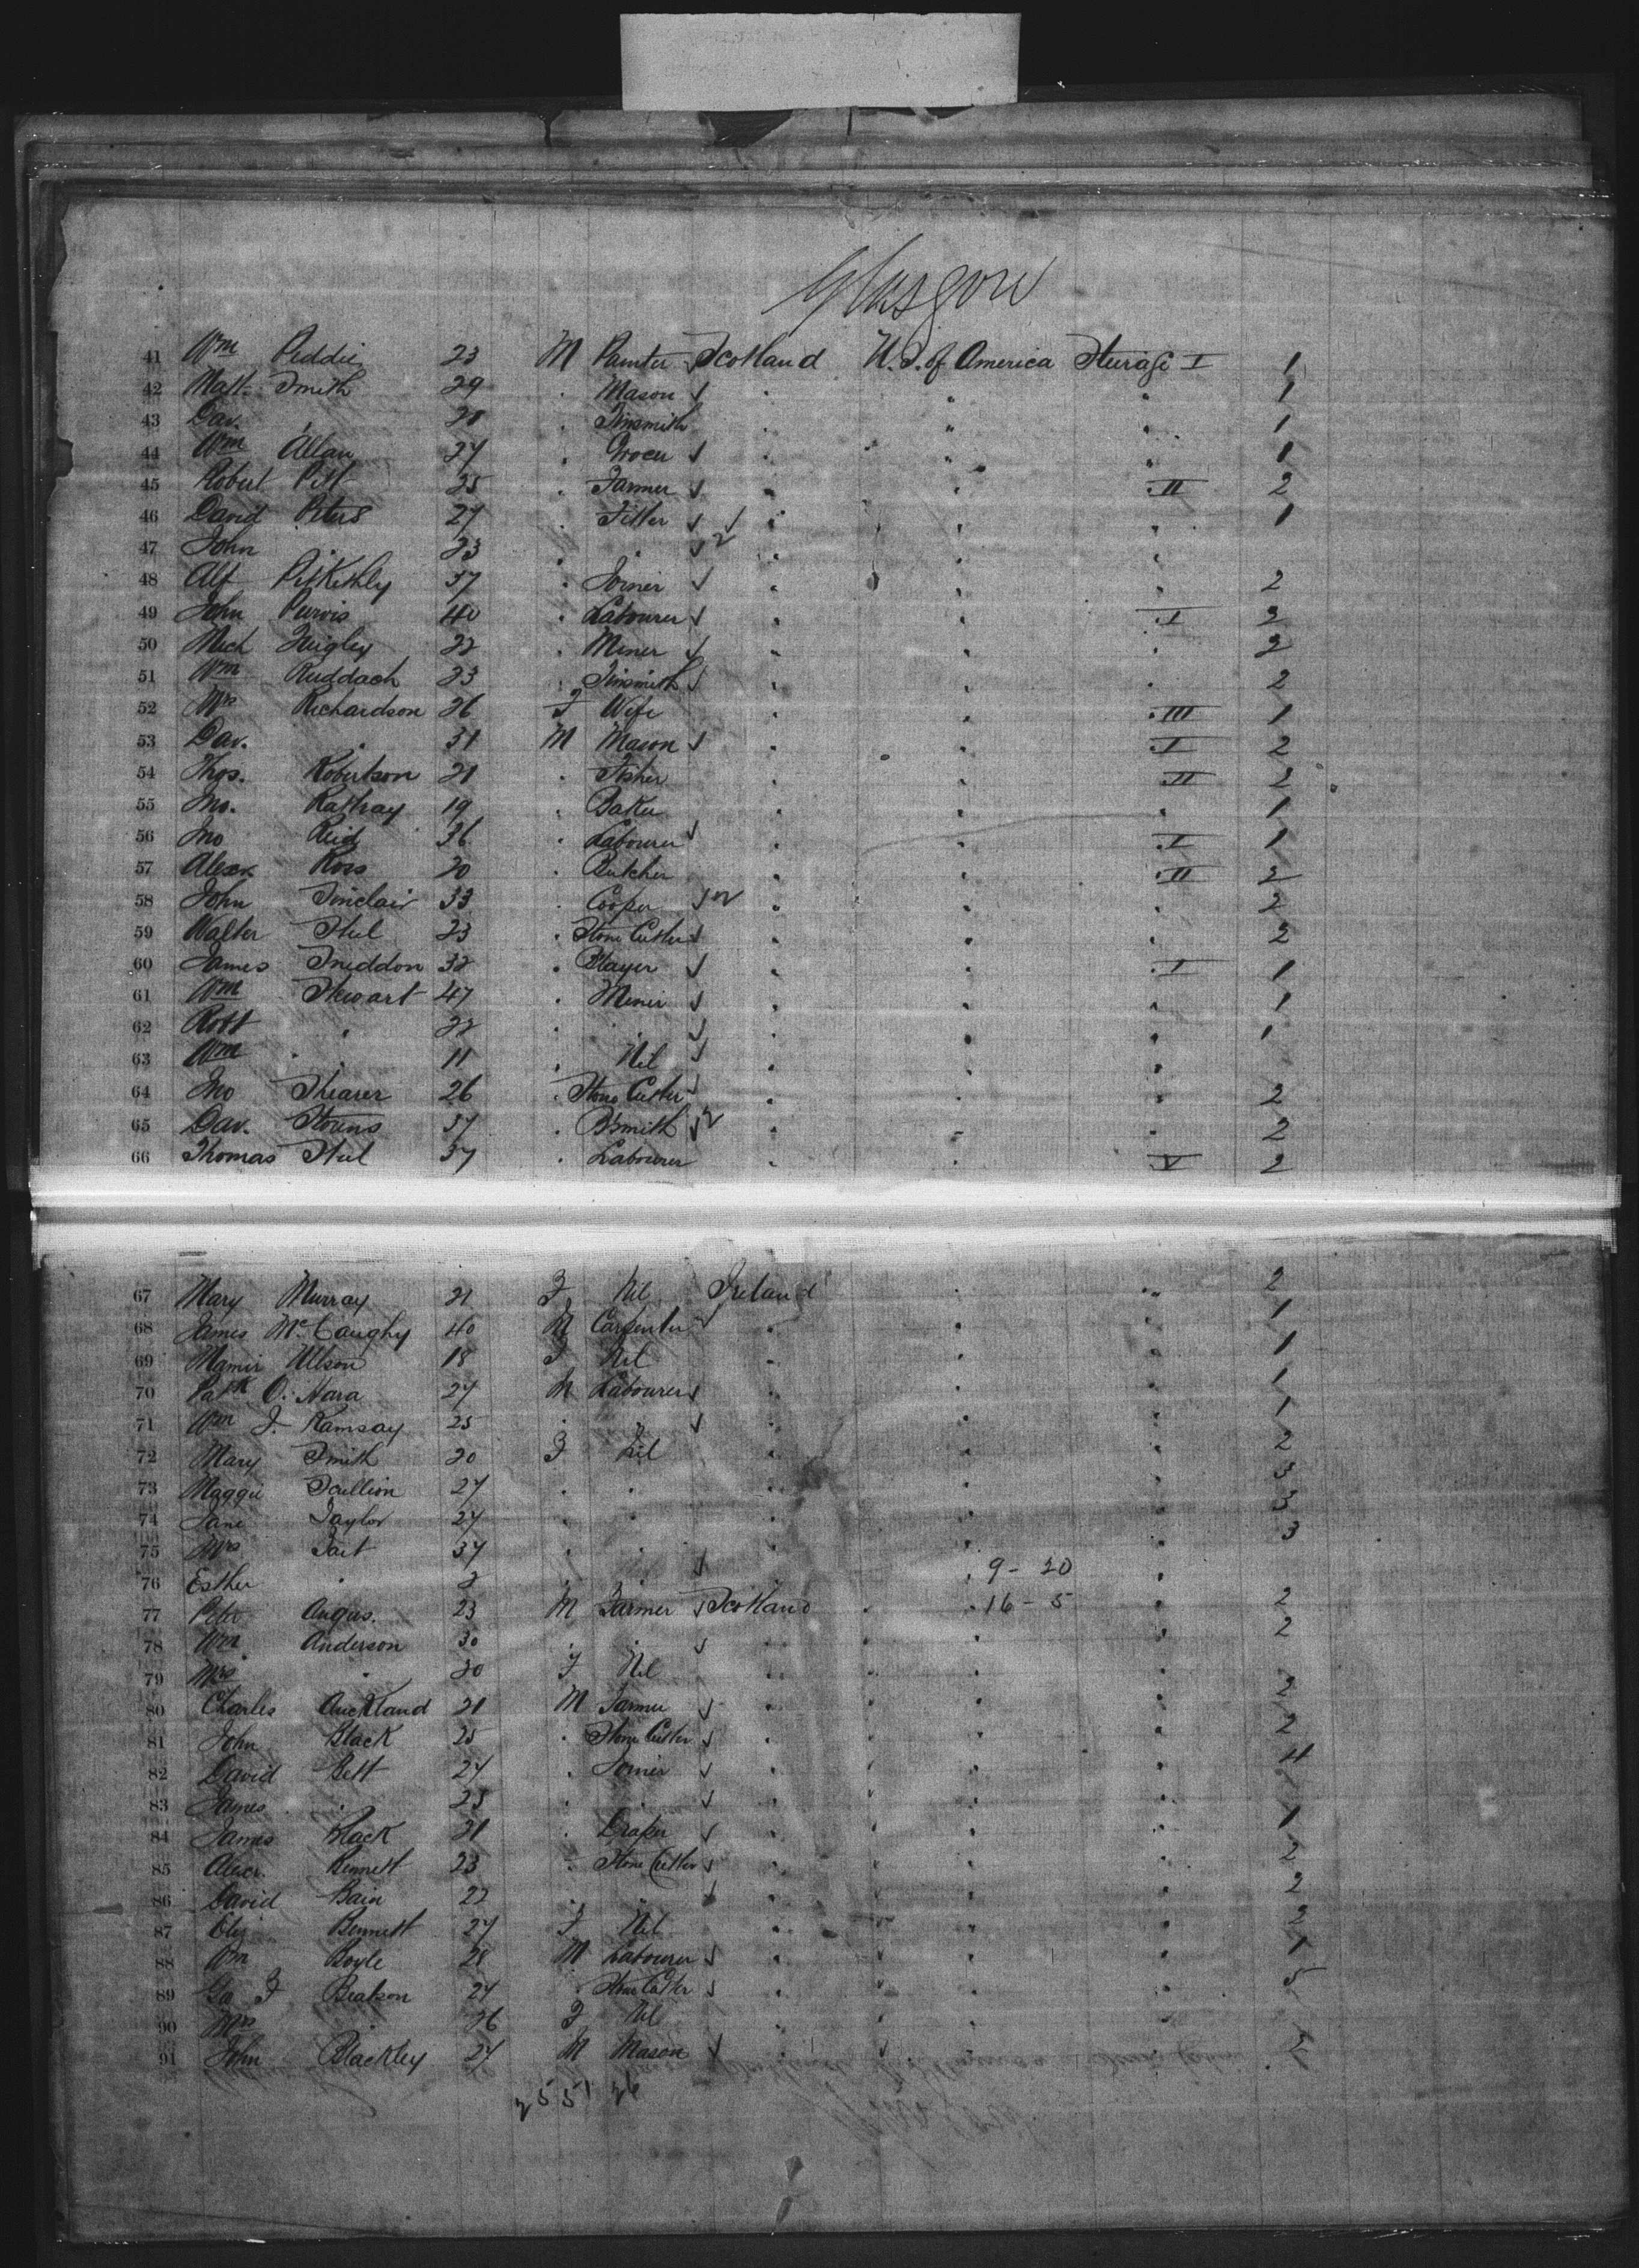 Glasgow
41 Wm Peddie 23 M Painter Scotland U.S. of America Steerage I 1
42 Matt. Smith 29 . Mason . " " 1
43 Dav. . 20 . Tinsmith . " " 1
44 Wm Allan 27 . Grocer . " " 1
45 Robert Pitt 25 . Farmer . " . II 2
46 David Peters 27 . Fitter . " " 1
47 John . 23 . . . " "
48 Alf Pitkethly 37 . Joiner . " " 2
49 John Purvis 40 . Labourer . " . I 2
50 Mich Quigley 22 . Miner . " . 2
51 Wm Ruddach 23 . Tinsmith . " . 2
52 Mrs Richardson 26 F Wife . " . III 1
53 Dav. . 31 M Mason . " . I 2
54 Thos. Robertson 21 . Fisher . " . II 2
55 Jno. Rattray 19 . Baker . " . 1
56 Jno Reid 36 . Labourer . " . I 1
57 Alexr Ross 20 . Butcher . " . II 2
58 John Sinclair 33 . Cooper . " . 2
59 Walter Steel 23 . Stone Cutter . " . 2
60 James Sneddon 32 . . " . I 1
61 Wm Stewart 47 . Miner . " . 1
62 Robt " 22 . . . " . 1
63 Wm . 11 . Nil . " .
64 Jno Shearer 26 . Stone Cutter . " . 2
65 Dav. 37 . B'smith . " . 2
66 Thomas Steel 37 . Labourer . " V 2
67 Mary Murray 21 F Nil Ireland . " 2
68 James McCaughy 40 M Carpenter . " . 1
69 18 F Nil . " . 1
70 Patk O'Hara 27 M Labourer . " . 1
71 Wm J. Ramsay 25 . . . " . 1
72 Mary Smith 20 F Nil . " . 2
73 Maggie Scullion 27 . . . " . 3
74 Jane Taylor 27 . . . " . 3
75 Mrs Tait 37 . . . " . 3
76 Esther . 2 . . . 9-20 .
77 Peter Angus. 23 M Farmer Scotland . 16-5 . 2
78 Wm Anderson 30 . . . " . 2
79 Mrs . 30 F Nil . " .
80 Charles Auckland 21 M Farmer . " . 2
81 John Black 25 . Stone Cutter . " . 2
82 David Bett 27 . Joiner . " . 4
83 James . 25 . . . " .
84 James Black 21 . Draper . " . 1
85 Alexr. Bennett 23 . Stone Cutter . " . 2
86 David Bain 22 . " . " . 2
87 Eliz Bennett 27 F Nil . " . 2
88 Wm Boyle 28 M Labourer . " . 1
89 Geo F Beatson 27 . Stone Cutter . " . 5
90 Mrs . 26 F Nil . " .
91 John Blackley 27 M Mason . " . 2